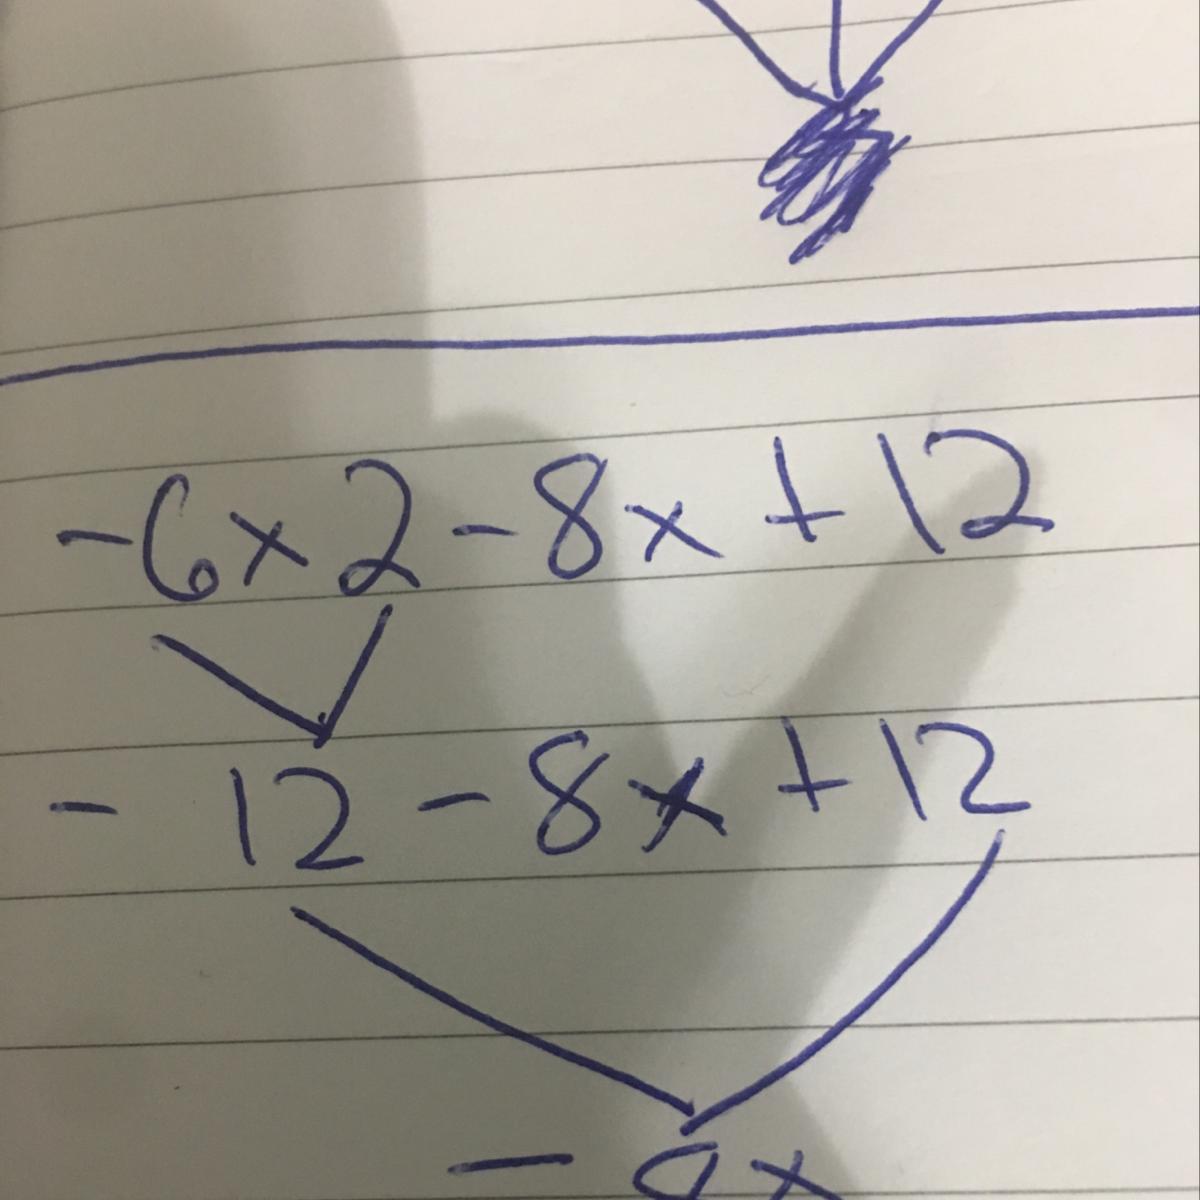 -6x2-8x+12
-12-8x+12